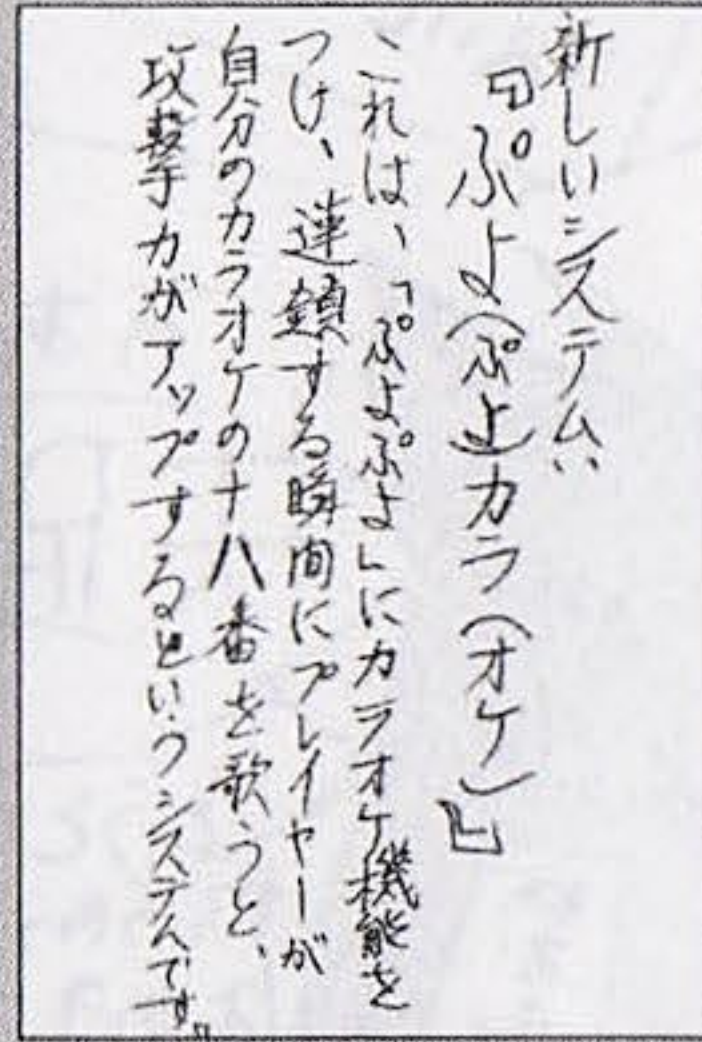 新しいシステム、、
『ぷよ(ぷよ)カラ(オケ)』
これは、「ぷよぷよ」にカラオケ機能を
つけ、連鎖する瞬間にプレイヤーが
自分のカラオケの十八番を歌うと、
攻撃力がアップするというシステムです。